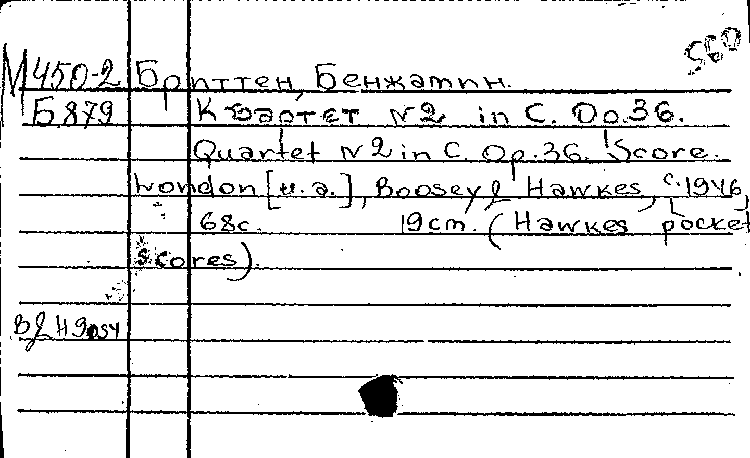 560
М450-2 Бриттен, Бенжамин.
Б879 Квартет №2 in C. Op.36.
Quartet №2 in C. Op.36. Score.
London [u.a.], Boosey & Hawkes, c.1946,
68с. 19cm. (Hawkes pocket
scores).
B&H 9054